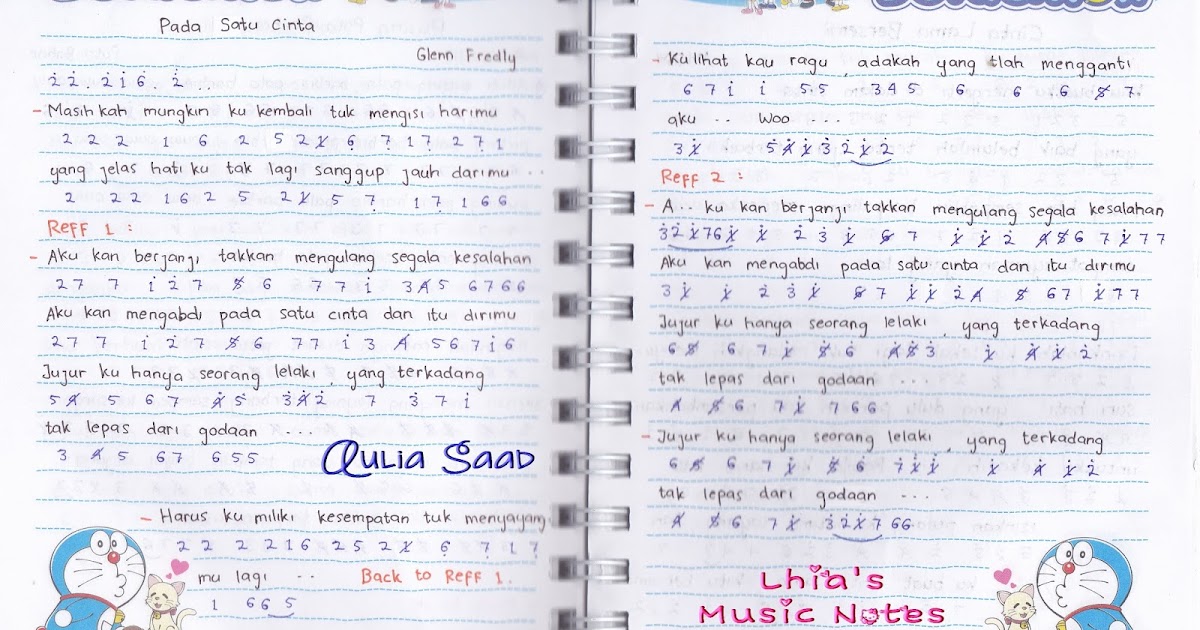 Pada Satu Cinta
Glenn Fredly
2̇ 2̇ . 2̇ 1̇ 6 . 2̇ . .
- Masihkah mungkin ku kembali tuk mengisi harimu
2 2 2 1 6 2 5 2 1̸ 6 7 1 7 2 7 1
yang jelas hatiku tak lagi sanggup jauh darimu ..
2 2 2 1 6 2 5 2 1̸ 5 7 1 7 1 6 6
Reff 1 :
- Aku kan berjanji takkan mengulang segala kesalahan
2 7 7 1̇ 2̇ 7 5̸ 6 7 7 1̇ 3 4̸ 5 6 7 6 6
Aku kan mengabdi pada satu cinta dan itu dirimu
2 7 7 1̇ 2̇ 7 5̸ 6 7 7 1̇ 3 4̸ 5 6 7 1̇ 6
Jujur ku hanya seorang lelaki, yang terkadang
5 4̸ 5 6 7 4̸ 5 3 4̸ 2 7 3̇ 7 1̇
tak lepas dari godaan ...
3 4̸ 5 6 7 6 5 5
Aulia Saad
- Harus ku miliki kesempatan tuk menyayang
2 2 2 2 1 6 2 5 2 1̸ 6 7 1 7
mu lagi .. Back to Reff 1.
1 6 6 5
- Kulihat kau ragu, adakah yang tlah mengganti
6 7 1̇ 1̇ 5 5 3 4 5 6 6 6 5̸ 7
aku .. Woo ...
3 1̸̇ 5 4̸ 4̸ 3 2̇ 1̸̇ 2̇
Reff 2 :
- A.. ku kan berjanji takkan mengulang segala kesalahan
3̇ 2̇ 1̸̇ 7 6 1̸̇ 1̸̇ 2̇ 3̇ 1̸̇ 6̸ 7 1̸̇ 1̸̇ 2̇ 4̸ 5̸ 6 7 1̸̇ 7 7
Aku kan mengabdi pada satu cinta dan itu dirimu
3 1̸̇ 1̸̇ 2̇ 3̇ 1̸̇ 6̸ 7 1̸̇ 1̸̇ 2̇ 4̸ 5̸ 6 7 1̸̇ 7 7
Jujur ku hanya seorang lelaki, yang terkadang
6 5̸ 6 7 1̸̇ 5̸ 6 4̸ 5̸ 3 1̸̇ 4̸ 1̸̇ 2̇
tak lepas dari godaan ....
4̸ 5̸ 6 7 1̸̇ 7 6 6
- Jujur ku hanya seorang lelaki, yang terkadang
6 5̸ 6 7 1̸̇ 5̸ 6 7 1̸̇ 1̸̇ 1̸̇ 4̸ 1̸̇ 2̇
tak lepas dari godaan ...
4̸ 5̸ 6 7 1̸̇ 3̇ 2̇ 1̸̇ 7 6 6
Lhia's
Music Notes